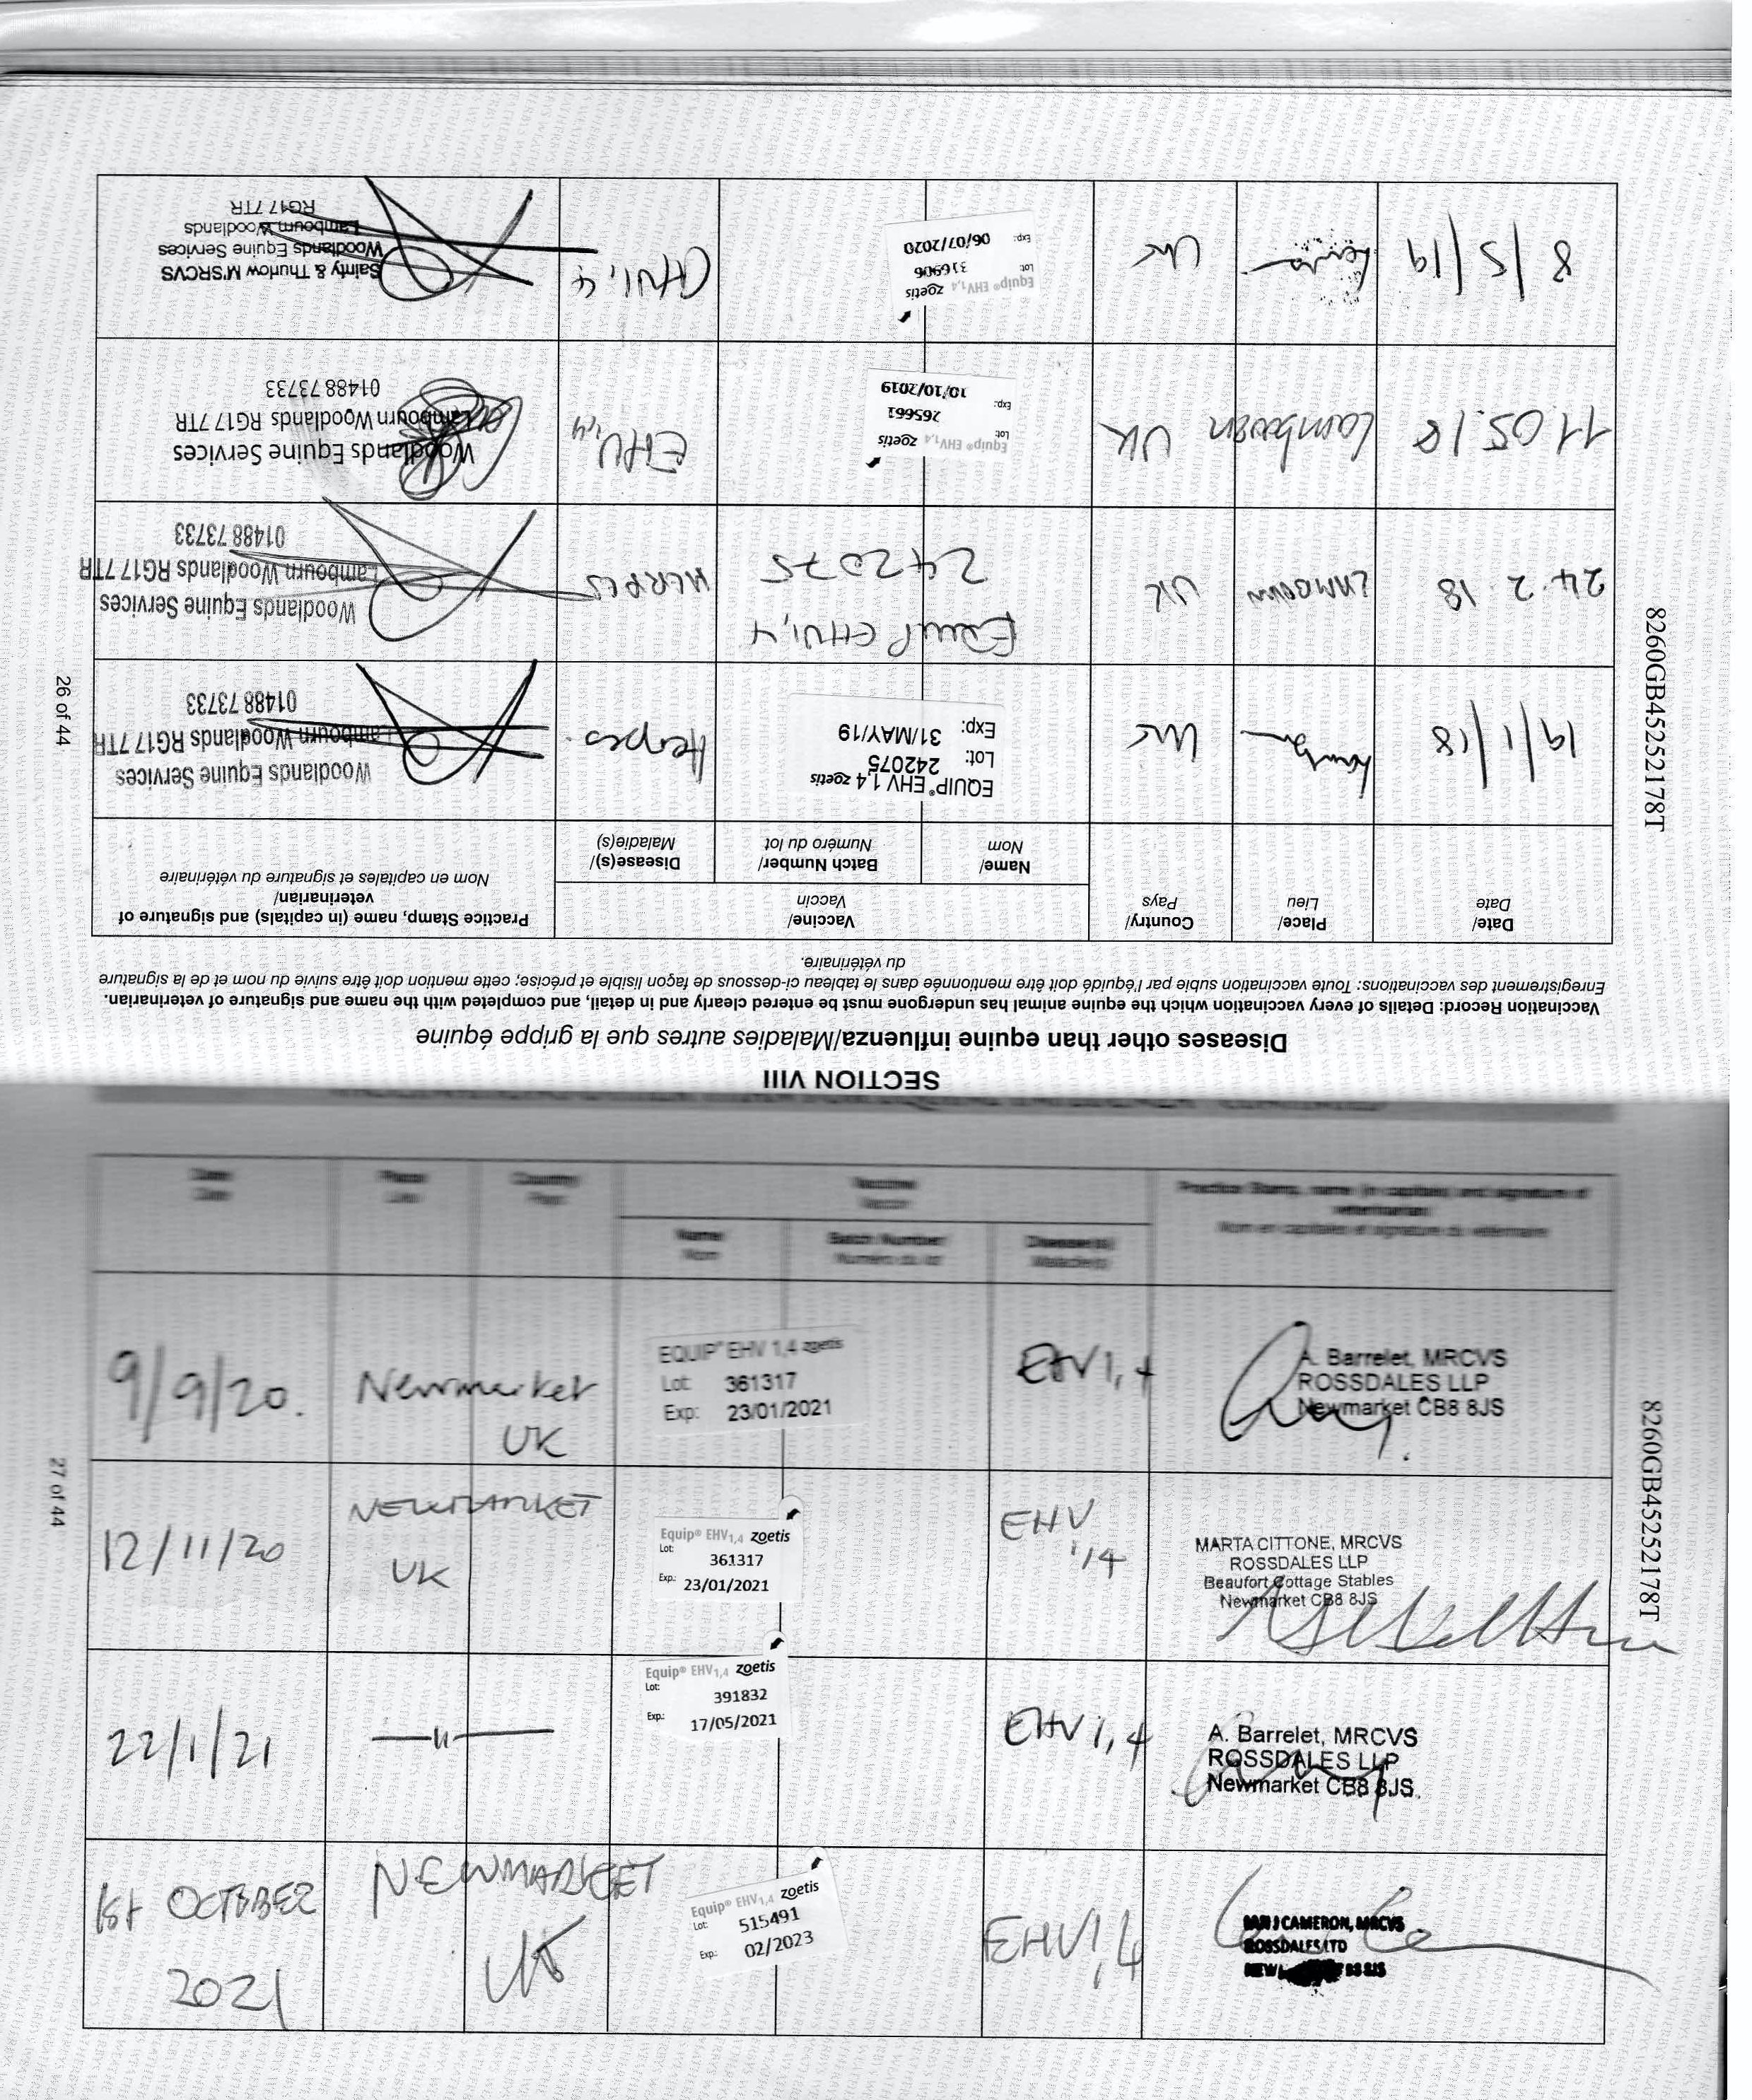 SECTION VIII
Diseases other than equine influenza/Maladies autres que la grippe équine
Vaccination Record: Details of every vaccination which the equine animal has undergone must be entered clearly and in detail, and completed with the name and signature of veterinarian.
Enregistrement des vaccinations: Toute vaccination subie par l'équidé doit être mentionnée dans le tableau ci-dessous de façon lisible et précise; cette mention doit être suivie du nom et de la signature
du vétérinaire.
Date/
Date
Place/
Lieu
Country/
Pays
Vaccine/
Vaccin
Name/
Nom
Batch Number/
Numéro du lot
Disease(s)/
Maladie(s)
Practice Stamp, name (in capitals) and signature of
veterinarian/
Nom en capitales et signature du vétérinaire
19/1/18
UK
EQUIP® EHV 1,4 zoetis
Lot: 242075
Exp: 31/MAY/19
Herpes
Woodlands Equine Services
Lambourn Woodlands RG17 7TR
01488 73733
24.2.18
LAMBOURN
UK
Equip EHV1,4
242075
HERPES
Woodlands Equine Services
Lambourn Woodlands RG17 7TR
01488 73733
11.05.18
Lambourn
UK
Equip® EHV1,4 zoetis
Lot: 265661
Exp: 10/10/2019
EHV1,4
Woodlands Equine Services
Lambourn Woodlands RG17 7TR
01488 73733
8/5/19
UK
Equip® EHV1,4 zoetis
Lot: 316906
Exp: 06/07/2020
EHV1,4
Sainty & Thurlow M'SRCVS
Woodlands Equine Services
Lambourn Woodlands
RG17 7TR
8260GB45252178T
26 of 44
Date
Date
Place
Lieu
Country
Pays
Vaccine
Vaccin
Name
Nom
Batch Number
Numéro du lot
Disease(s)
Maladie(s)
Practice Stamp, name (in capitals) and signature of
veterinarian
Nom en capitales et signature du vétérinaire
9/9/20.
Newmarket
UK
EQUIP® EHV 1,4 zoetis
Lot: 361317
Exp: 23/01/2021
EHV1,4
A. Barrelet, MRCVS
ROSSDALES LLP
Newmarket CB8 8JS
12/11/20
NEWMARKET
UK
Equip® EHV1,4 zoetis
Lot: 361317
Exp.: 23/01/2021
EHV
1,4
MARTA CITTONE, MRCVS
ROSSDALES LLP
Beaufort Cottage Stables
Newmarket CB8 8JS
22/1/21
—"—
Equip® EHV1,4 zoetis
Lot: 391832
Exp.: 17/05/2021
EHV1,4
A. Barrelet, MRCVS
ROSSDALES LLP
Newmarket CB8 8JS.
1st OCTOBER
2021
NEWMARKET
UK
Equip® EHV1,4 zoetis
Lot: 515491
Exp.: 02/2023
EHV1,4
IAN J CAMERON, MRCVS
ROSSDALES LTD
8260GB45252178T
27 of 44